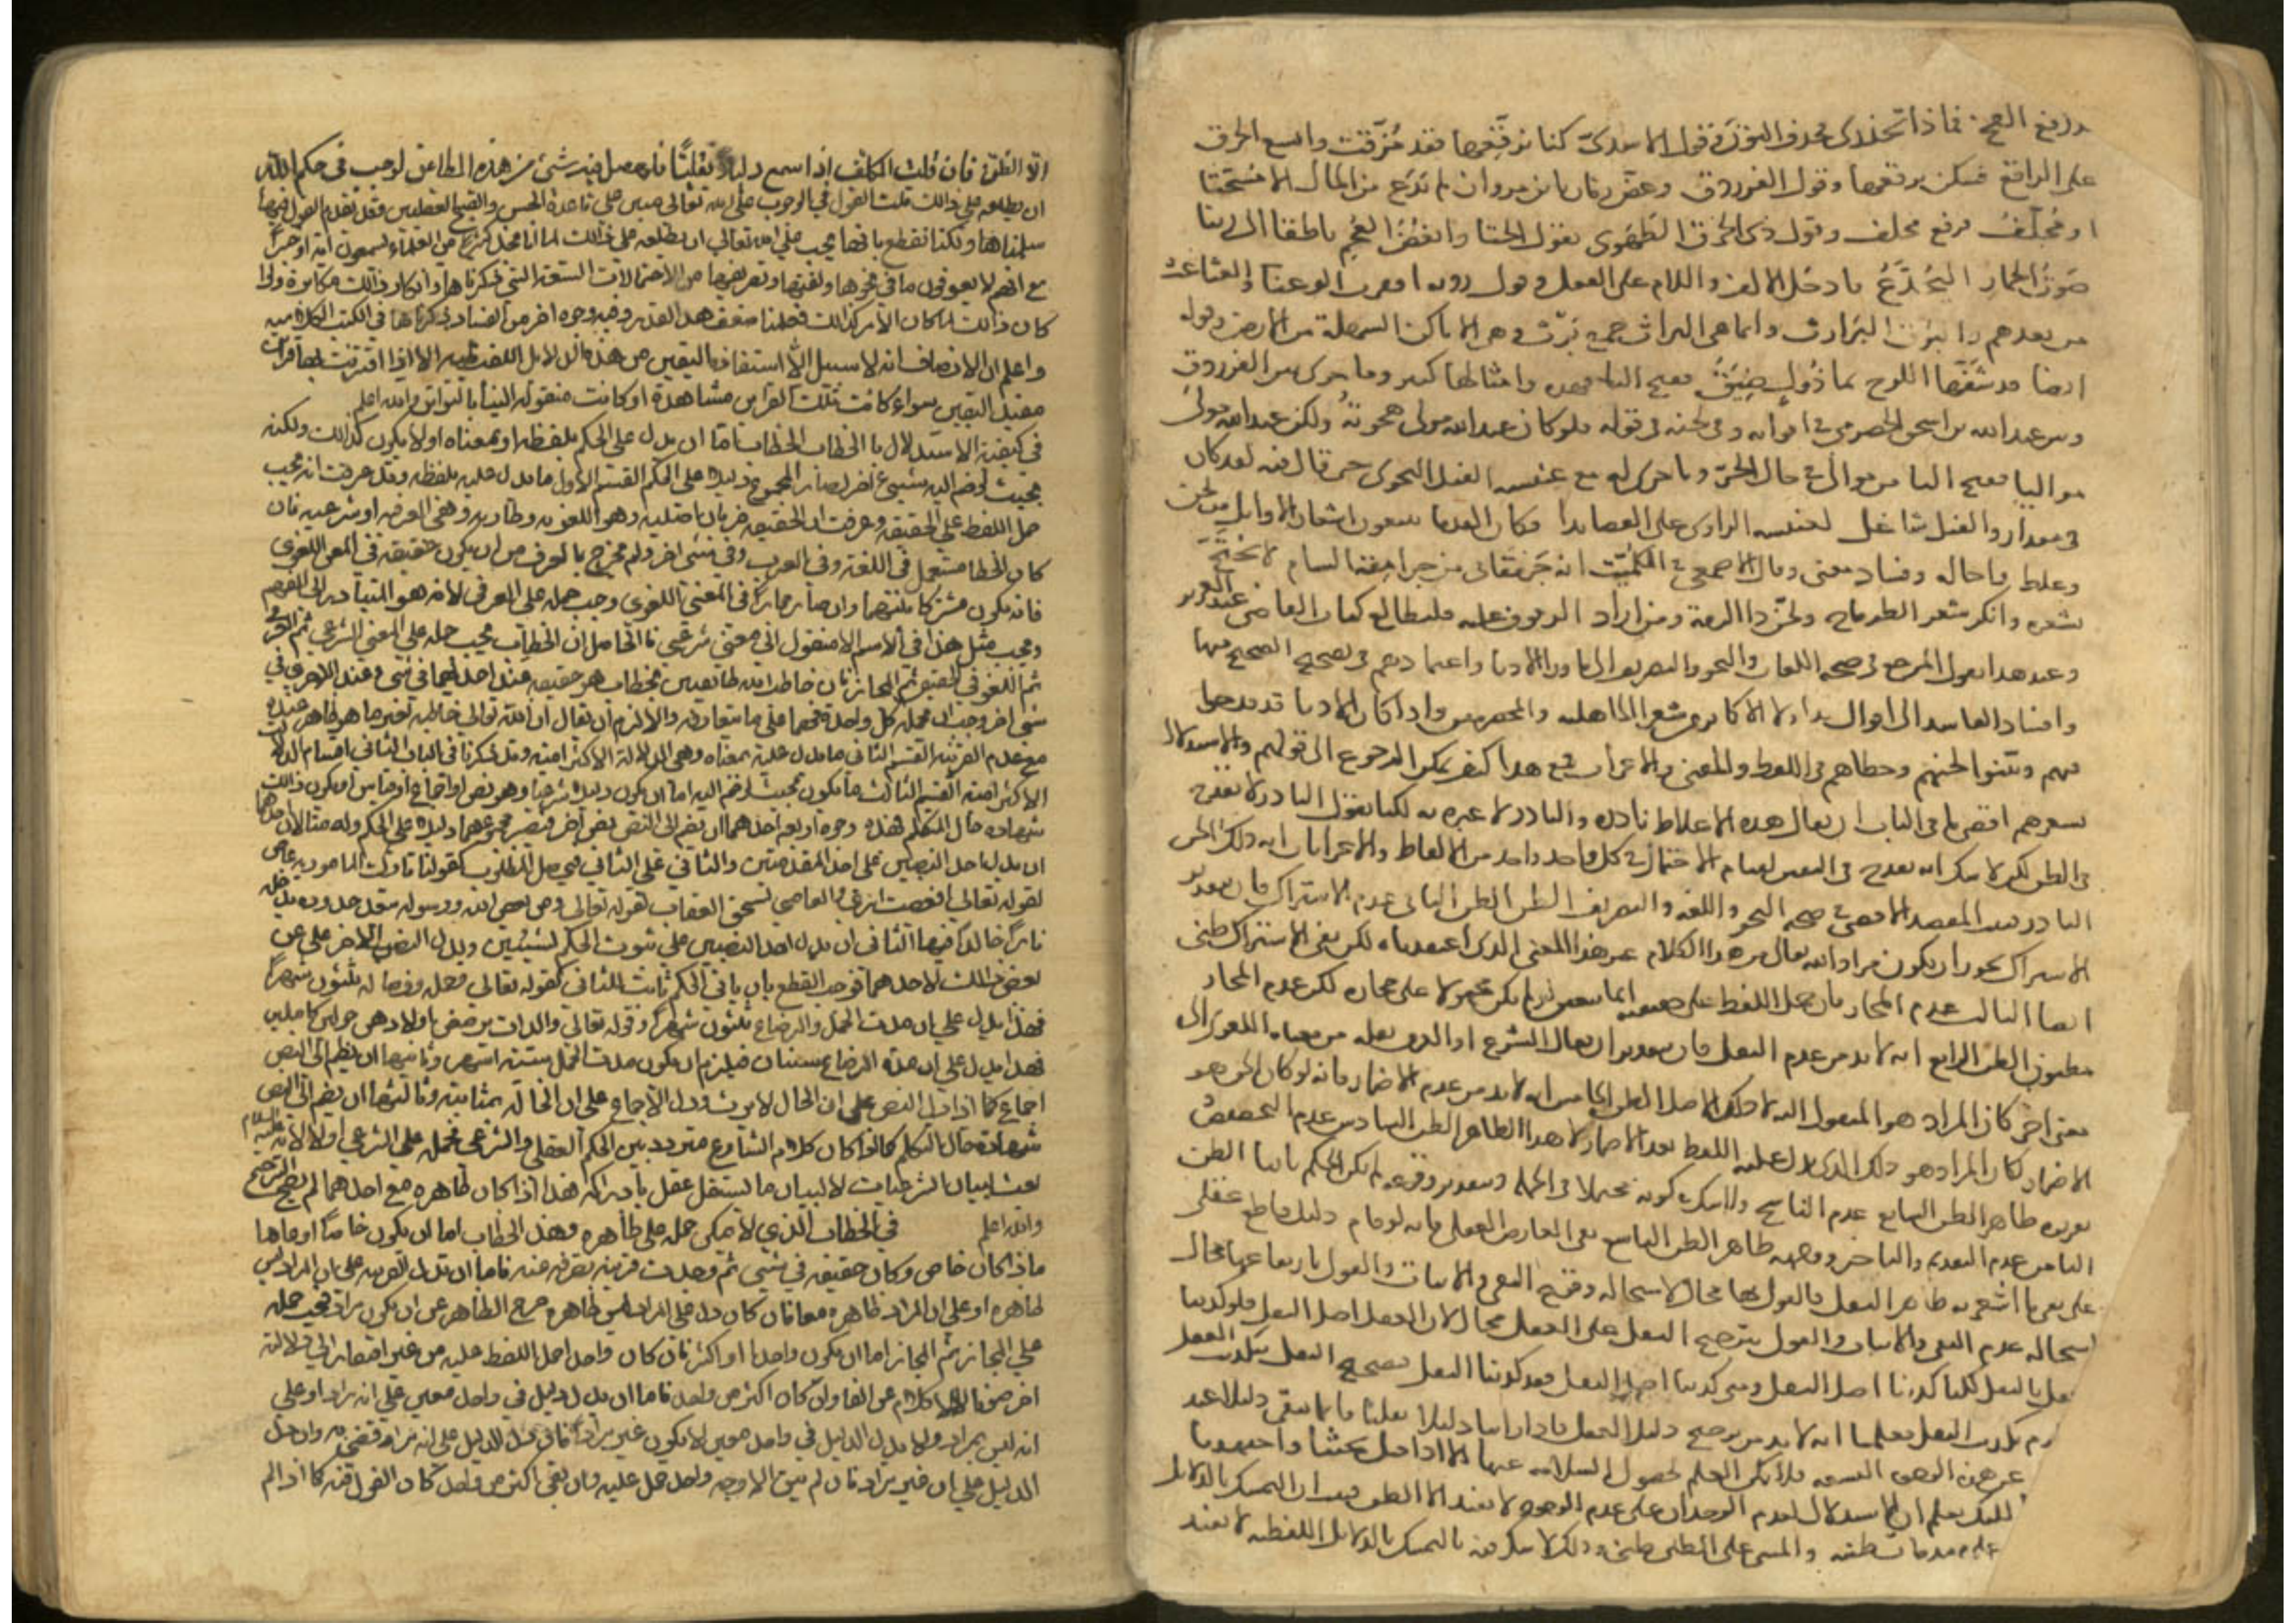 ورفع العجز فماذا تخذلاى محذف النون وفى قول الاسدى كنا نرقعها فقد مُزّقت واتسع الخرق
على الراقع فسكن نرقعها وقول الفرزدق وعض زمان يا بن مروان لم يدع من المال الا مسحتا
او مجلّف فرفع مجلف وقول ذى الخرق الطهوى يقول الخنا وابغض العجم ناطقا الى ربنا
صوت الحمار اليجدّع فادخل الالف واللام على الفعل وقول روبه
من بعدهم والبرّث البرارث وانما هى البراث جمع برث وهى الاماكن السهلة من الارض وقوله
ايضا قد شفّها اللوح بما زولٍ ضيق ففتح اليا وامثالها كثير وما جرى بين الفرزدق
وبين عبد الله بن اسحق الحضرمى فى اقوائه وفى لحنه فى قوله فلو كان عبد الله مولى هجوته ولكن عبد الله مولى
مواليا ففتح اليا من موالى فى حال الجر وما جرى له مع عنبسه الفيل النحوى حتى قال فيه لقد كان
فى معدان والفيل شاغل لعنبسه الراوى على القصايدا وكان القدما يتبعون اشعار الاوايل من لحن
وغلط واحاله وفساد معنى وقال الاصمعى فى الكميت انه جرمقانى من جرامقة الشام لا يحتج
بشعره وانكر شعر الطرماح ولحّن ذا الرمة ومن اراد الوقوف عليه فليطالع كتاب القاضى عبد العزيز
وعند هذا نقول المرجع فى صحه اللغات والنحو والتصريف الى هاولا الادبا واعتمادهم فى تصحيح الصحيح منها
وافساد الفاسد الى اقوال هاولا الاكابر من شعرا الجاهليه والمخضرمين واذا كان الادبا قد قدحوا
فيهم وبينوا لحنهم وخطاهم فى اللفظ والمعنى والاعراب فمع هذا كيف يمكن الرجوع الى قولهم والاستدلال
بشعرهم اقصى ما فى الباب ان يقال هذه الاغلاط نادره والنادر لا عبره به لكنا نقول النادر لا يقدح
فى الظن لكن لا شك انه يقدح فى اليقين لقيام الاحتمال فى كل واحد واحد من الالفاظ والاعرابات انه ذلك اللحن
النادر فثبت المقصد الاقصى فى صحه النحو واللغه والتصريف الظن الظن الثانى عدم الاشتراك فان بتقدير
الاشتراك يجوز ان يكون مراد الله تعالى من هذا الكلام غير هذا المعنى الذى اعتقدناه لكن نفى الاشتراك ظنى
ايضا الثالث عدم المجاز فان حمل اللفظ على حقيقته انما يتعين لو لم يكن محمولا على مجازه لكن عدم المجاز
مظنون الظن الرابع انه لا بد من عدم النقل فان بتقدير ان يقال الشرع او العرف نقله من معناه اللغوى الى
معنى اخر كان المراد هو المنقول اليه لا ذلك الاصل الظن الخامس انه لا بد من عدم الاضمار فانه لو كان الحق هو
الاضمار لكان المراد هو ذلك الذى يدل عليه اللفظ بعد الاضمار لا هذا الظاهر الظن السادس عدم التخصيص
تقريره ظاهر الظن السابع عدم الناسخ ولا شك فى كونه محتملا فى الجمله وبتقدير وقوعه لم يكن الحكم ثابتا الظن
الثامن عدم التقديم والتاخير ووجهه ظاهر الظن التاسع نفى المعارض العقلى فانه لو قام دليل قاطع عقلى
على نفى ما اشعر به ظاهر النقل فالقول بهما محال لاستحاله وقوع النفى والاثبات والقول بارتفاعهما محال
لاستحاله عدم النفى والاثبات والقول بترجيح النقل على العقل محال لان العقل اصل النقل فلو كذبنا
العقل بالنقل لكنا كذبنا اصل النقل ومتى كذبنا اصل النقل فقد كذبنا النقل فتصحيح النقل بتكذيب العقل
يلزم تكذيب النقل فعلمنا انه لا بد من ترجيح دليل العقل فاذا راينا دليلا نقليا فانما يبقى دليلا عند
عن هذه الوجوه التسعه فلا يمكن العلم بحصول السلامه عنها الا اذا قيل بحثنا واجتهدنا
لكنك تعلم ان الاستدلال بعدم الوجدان على عدم الوجود لا يفيد الا الظن فثبت ان التمسك بالدلايل
على مقدمات ظنيه والمبنى على الظنى ظنى وذلك لا شك فيه بالتمسك بالدلايل اللفظيه لا يفيد
الا الظن فان قلت المكلف اذا سمع دليلا نقليًا فلو حصل فيه شى من هذه المطاعن لوجب فى حكم الله
ان يطلعه على ذلك قلت القول فى الوجوب على الله تعالى مبنى على قاعدة الحسن والقبح العقليين وقد تقدم القول فيها
سلمناها ولكنا نقطع بانه لا يجب على الله تعالى ان يطلعه على ذلك لما انا نجد كثيرا من العلماء يسمعون اية او خبرًا
مع انهم لا يعرفون ما فى نحوها ولغتها وتصريفها من الاحتمالات التسعة التى ذكرناها وانكار ذلك مكابرة ولو
كان ذلك لما كان الامر كذلك فعلمنا ضعف هذا العذر وفيه وجوه اخر من الفساد ذكرناها فى الكتب الكلاميه
واعلم ان الانصاف انه لا سبيل الى استفادة اليقين من هذه الدلايل اللفظيه الا اذا اقترنت بها قراين
مفيد اليقين سواء كانت تلك القراين مشاهدة او كانت منقولة الينا بالتواتر والله اعلم
فى كيفية الاستدلال بالخطاب الخطاب اما ان يدل على الحكم بلفظه او بمعناه او لا يكون كذلك ولكنه
بحيث لو ضم اليه شيىء اخر لصار المجموع دليلا على الحكم القسم الاول ما يدل عليه بلفظه وقد عرفت انه يجب
حمل اللفظ على الحقيقه وعرفت ان الحقيقه ضربان اصليه وهو اللغويه وطاريه وهى العرفيه او شرعيه فان
كان الخطاب مستعمل فى اللغة وفى العرف وفى شئ اخر ولم يخرج بالعرف من ان يكون حقيقه فى المعنى اللغوى
فانه يكون مشتركا بينهما وان صار مجازا فى المعنى اللغوى وجب حمله على العرفى لانه هو المتبادر الى الفهم
ويجب مثل هذا فى الاسم الامنقول الى معنى شرعيى فالحاصل ان الخطاب يجب حمله على المعنى الشرعى ثم العرفى
ثم اللغوى الحقيقى ثم المجاز فان خاطب الله طائفتين بخطاب هو حقيقه عند احداهما فى شى وعند الاخرى فى
شى اخر وجب ان تحمله كل واحدة منهما على ما يتعارفه والا لزم ان يقال ان الله تعالى خاطبه بغير ما هو ظاهر عنده
مع عدم القرينة القسم الثانى ما يدل عليه بمعناه وهى الدلالة الالتزامية وقد ذكرنا فى الباب الثانى اقسام الدلالة
الالتزاميه القسم الثالث ما يكون بحيث لو ضم اليه اما ان يكون دليلا شرعيا وهو نص او اجماع او قياس او يكون ذلك
شهاده حال المتكلم فهذه وجوه اربعه احدهما ان يضم الى النص نص اخر فيصير مجموعهما دليلا على الحكم وله مثالان احدهما
ان يدل احد النصين على احدى المقدمتين والثانى على الثانى فيحصل المطلوب كقولنا تارك المامور به عاص
لقوله تعالى افعصيت امرى والعاصى يستحق العقاب لقوله تعالى ومن يعص الله ورسوله ويتعد حدوده يدخله
نارًا خالدًا فيها الثانى ان يدل احد النصين على ثبوت الحكم لشيئين ويدل النص الاخر على ان
بعض ذلك لاحدهما فوجب القطع بان باقى الحكم ثابت للثانى كقوله تعالى وحمله وفصاله ثلثون شهرًا
فهذا يدل على ان مدت الحمل والرضاع ثلثون شهرًا وقوله تعالى والوالدات يرضعن اولادهن حولين كاملين
فهذا يدل على ان مدة الرضاع سنتان فيلزم ان يكون مدت الحمل ستة اشهر وثانيها ان ينظم الى النص
اجماع كما اذا دل النص على ان الخال لا يرث ودل الاجماع على ان الخالة بمثابته وثالثها ان يضم الى النص
شهادة حال المتكلم كما اذا كان كلام الشارع متردد بين الحكم العقلى والشرعى فحمله على الشرعى اولا لانه عليه السلام
بعث لبيان الشرعيات لا لبيان ما يستقل عقل بادراكه فهذا اذا كان ظاهره مع احدهما لم يصح الترجيح
والله اعلم فى الخطاب الذي لا يمكن حمله على ظاهره وهذا الخطاب اما ان يكون خاصا او عاما
فاذا كان خاص وكان حقيقه فى شيى ثم وجدت قرينه تصرفه عنه فاما ان تدل القرينه على ان المراد ليس
ظاهره او على ان المراد ظاهره معا فان كان دل على المراد ليس ظاهره خرج الظاهر عن ان يكون مراد فيجب حمله
على المجاز ثم المجاز اما ان يكون واحدا او اكثر فان كان واحد احمل اللفظ عليه من غير افتقار الى دلالة
اخرى وان كان اكثر من واحد فاما ان يدل دليل فى واحد معين على انه مراد او على
انه ليس بمراد ولا يدل الدليل فى واحد معين لا بكون غير مراد فان دل الدليل على انه مراد قضى به وان دل
الدليل على ان غير مراد فان لم يبق الا وجه واحد حمل عليه وان بقى اكثر من واحد كان القول فيه كما اذا لم